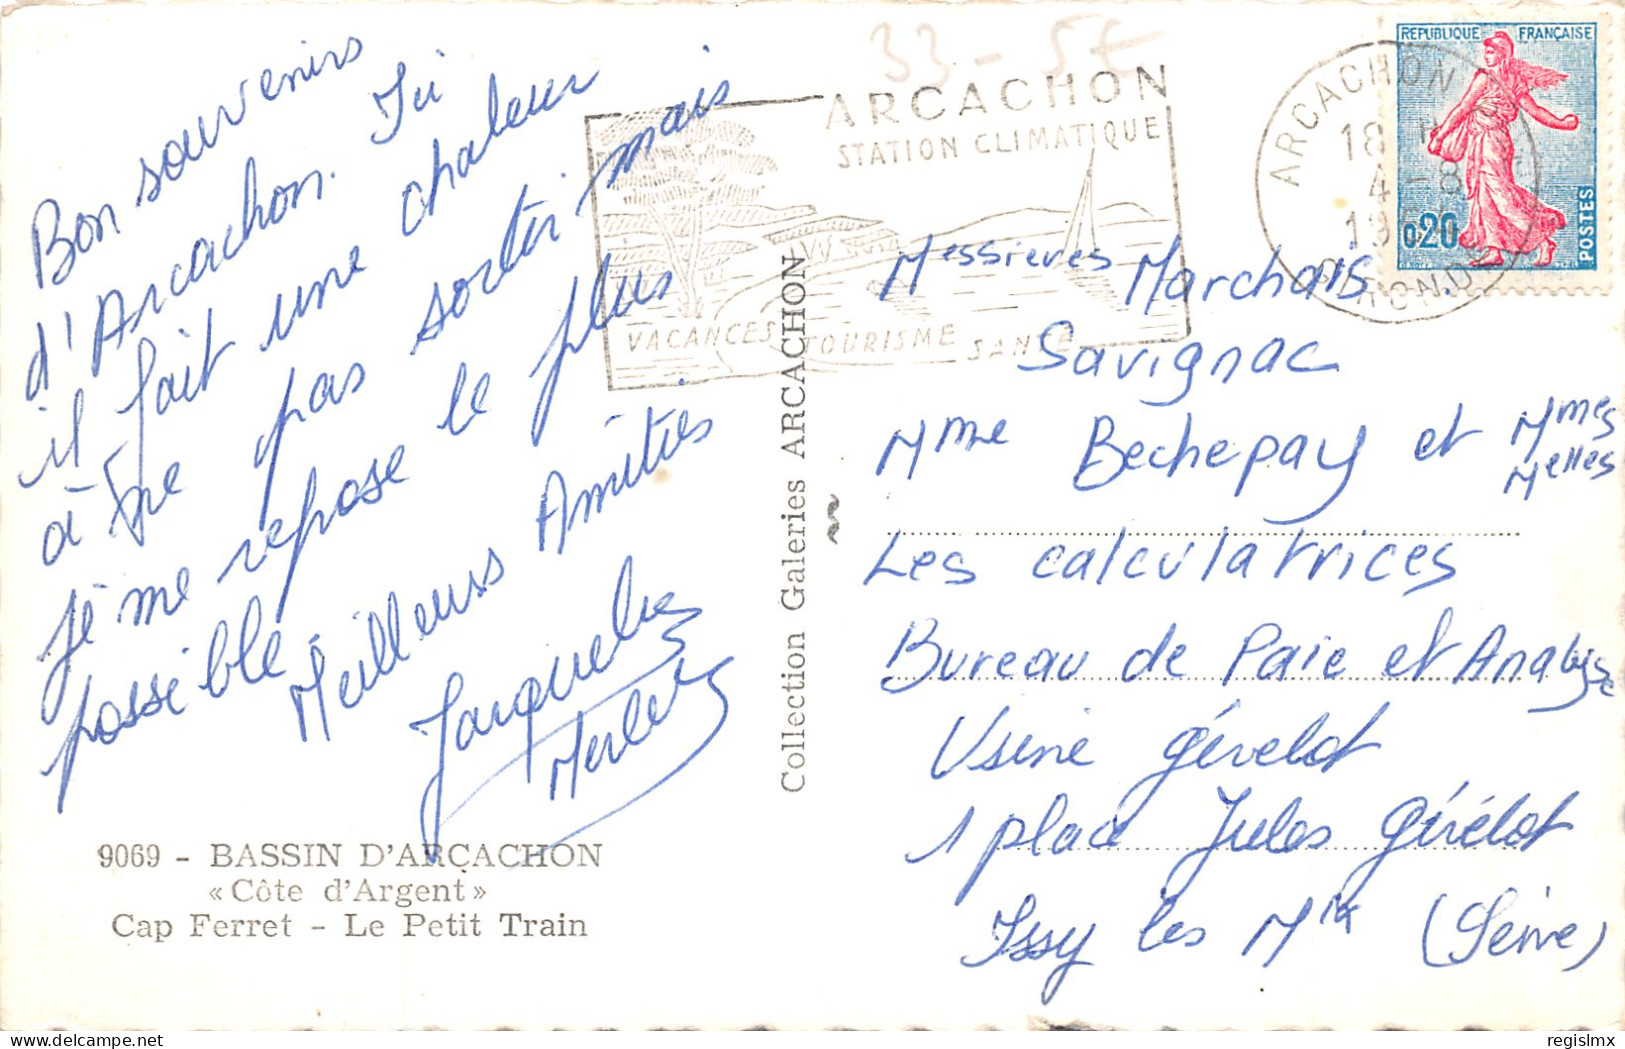 33 - 5€
Bon souvenirs
d'Arcachon. Ici
il fait une chaleur
à ne pas sortir mais
je me repose le plus
possible
Meilleurs Amitiés
9069 - BASSIN D'ARCACHON
« Côte d'Argent »
Cap Ferret - Le Petit Train
Collection Galeries ARCACHON
ARCACHON
STATION CLIMATIQUE
VACANCES TOURISME SANTE
ARCACHON
18 H
4 - 8
REPUBLIQUE FRANÇAISE
0,20
POSTES
Messieres Marchais
Savignac
Mme Bechepay et Mmes
Melles
Les calculatrices
Bureau de Paie et Analyse
Usine Gévelot
1 place Jules Gévelot
Issy les Mlx (Seine)
regislmx